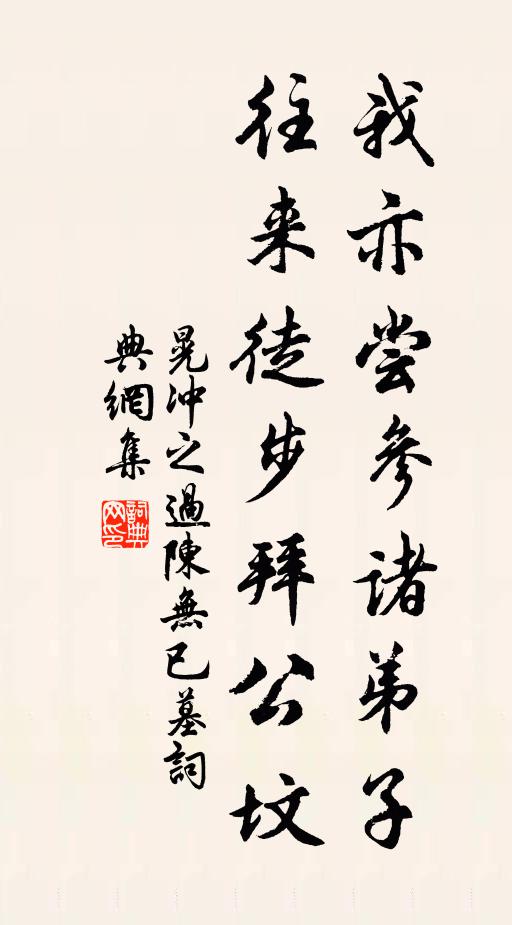 我亦尝參诸弟子
往来徒步拜公坟
晃沖之過陳無已墓詞
典網集
詞典
网印